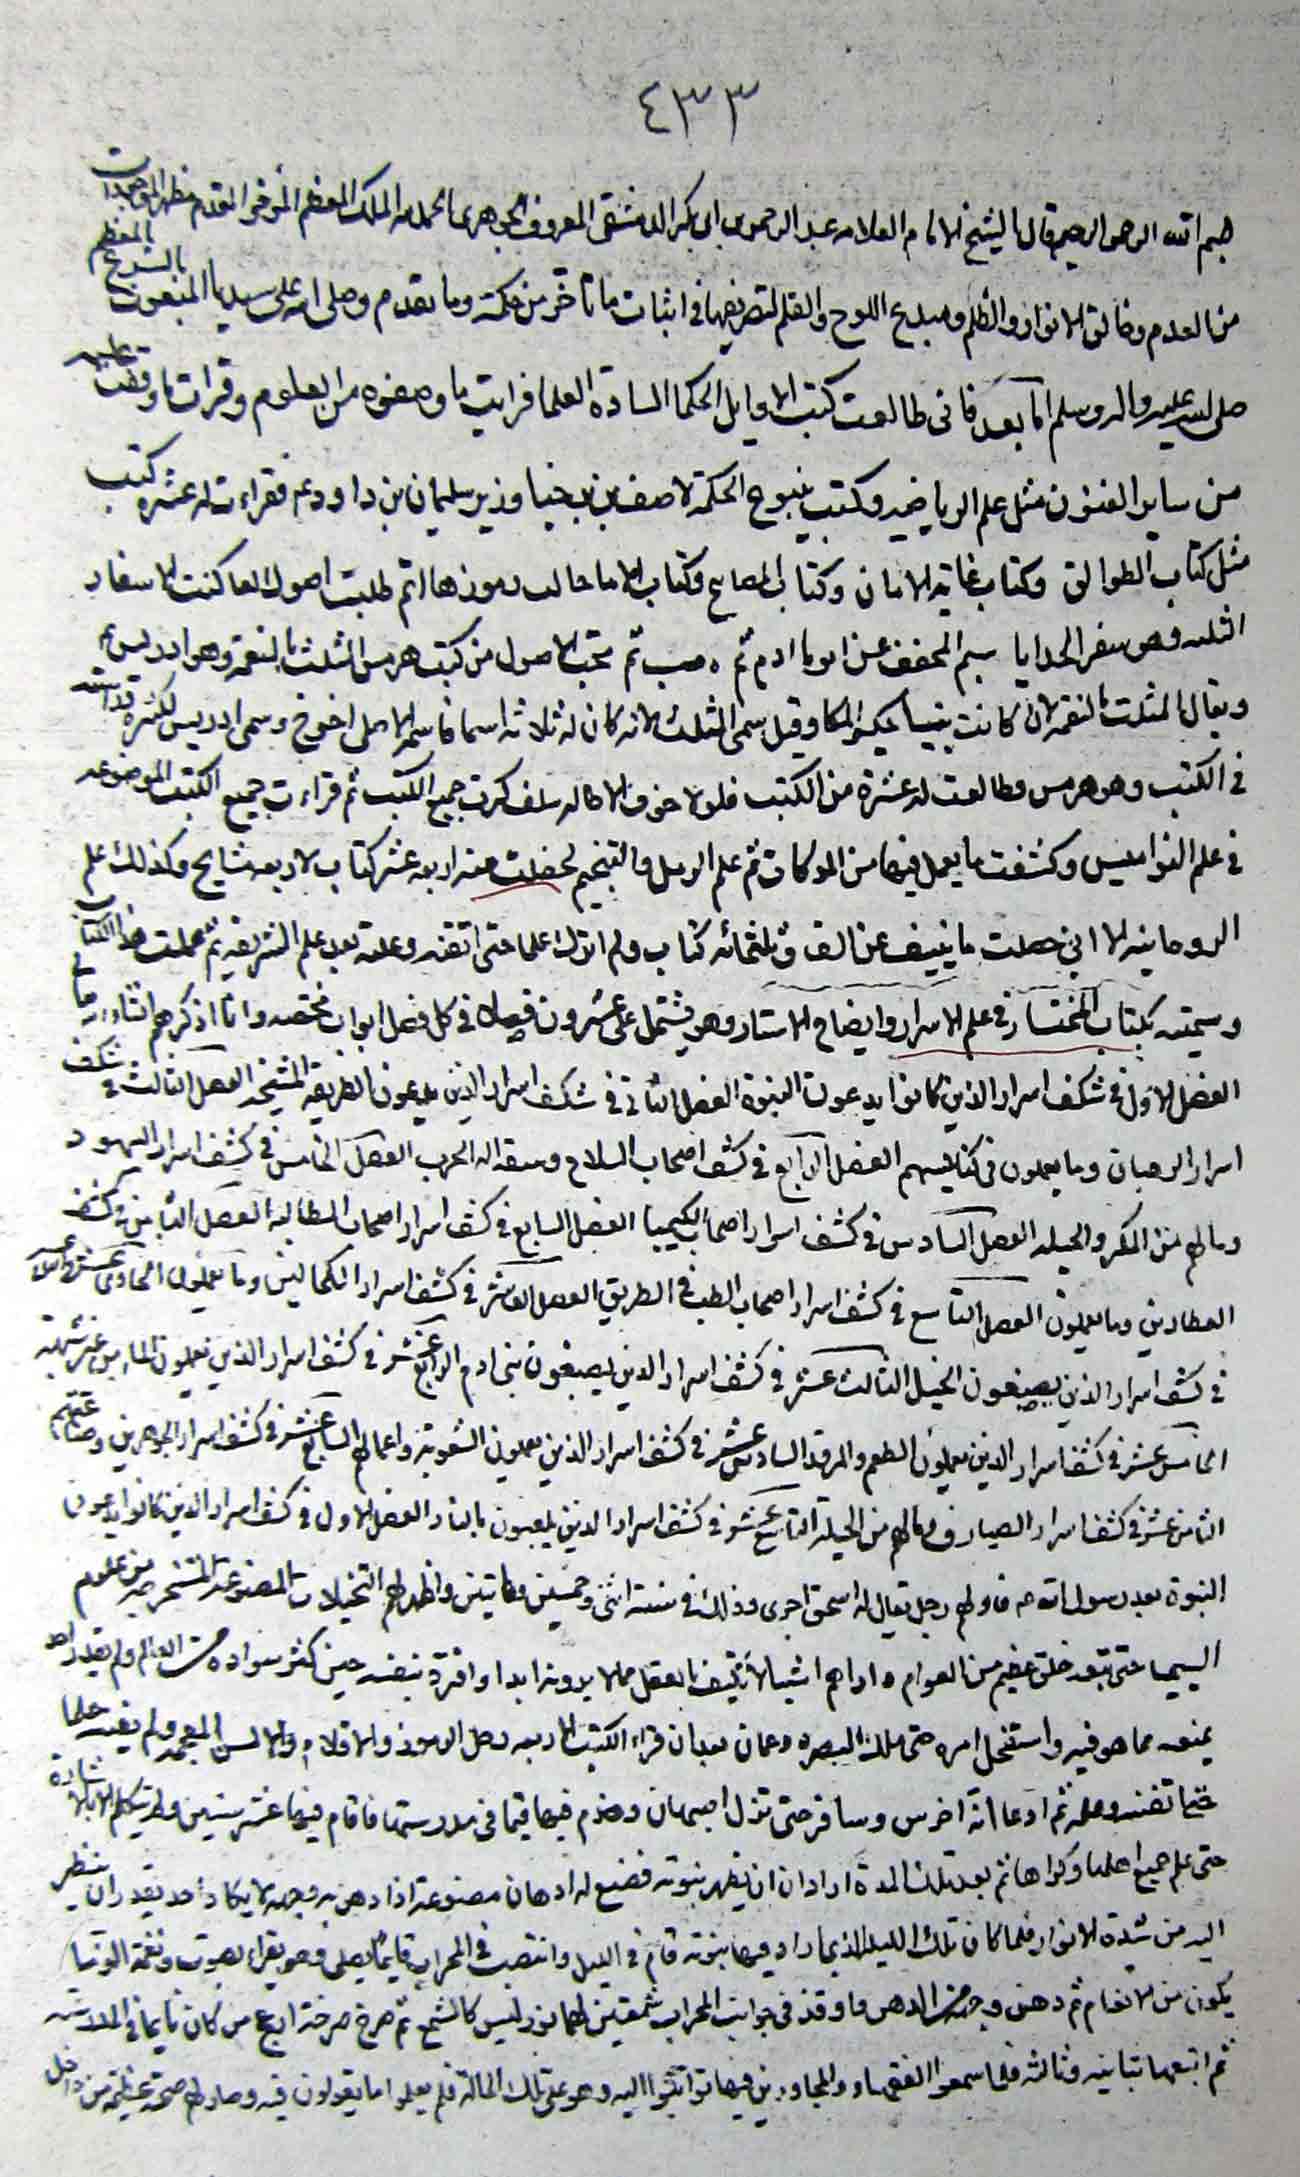 ٤٣٣
بسم الله الرحمن الرحيم قال الشيخ الامام العلامه عبد الرحمن بن ابى بكر الدمشقى المعروف بالجوهرى الحمد لله الملك المعظم المؤخر المقدم مظهر الموجودات
من العدم وخالق الانوار والظلم ومبدع اللوح والقلم لتصريفها فى اثبات ما تأخر من حكمته وما تقدم وصلى الله على سيدنا المبعوث بالشرع المعظم
صلى الله عليه واله وسلم اما بعد فانى طالعت كتب الاوايل الحكما السادة العلما فرايت ما وضعوه من العلوم وقرات ما وقفت عليه
من ساير الفنون مثل علم الرياضيه وكتب ينبوع الحكمة لاصف بن برخيا وزير سليمان بن داود عم فقراءت له عشره كتب
مثل كتاب الطوالق وكتاب غاية الامان وكتاب المصابيح وكتاب رموزها ثم طلبت اصولها كنت الاسفار
الثلثه وهو سفر الخدايا عن ابونا ادم ثم ثم الاصول من كتب هرمس المثلث بالنعمة وهو ادريس عم
ويقال المثلث بالنعمه لانه كان نبيا حكيما ملكا وقيل سمى المثلث لانه كان له ثلاثه اسما فاسمه الاصلى اخنوخ وسمى ادريس لكثرة دراسته
فى الكتب وهو هرمس وطالعت له عشرة من الكتب فلولا خوف الاطاله لذكرت جميع الكتب ثم قراءت جميع الكتب الموضوعه
فى علم النواميس وكشفت ما يعمل فيها من ثم علم الرمل والتنجيم لحصلت منه اربعه عشر كتاب لاربعه مشايخ وكذلك علم
الروحانيه الا انى حصلت ما ينيف عن الف وثلثمائه كتاب ولم اترك علما حتى اتقنه وعلمه بعد علم الشريفه ثم عملت هذا الكتاب
وسميته بكتاب المختار فى علم الاسرار وايضاح الاستار وهو يشتمل على عشرون فصلا فى كل فصل ابواب مختصه وانا اذكرهم انشاء الله تعالى
الفصل الاول فى كشف اسرار الذين كانوا يدعون النبوة الفصل الثانى فى كشف اسرار الذين يدعون الطريقه المشيخه الفصل الثالث فى كشف
اسرار الرهبان وما يعملون فى كنايسهم الفصل الرابع فى كشف اصحاب السلاح وسقاله الحرب الفصل الخامس فى كشف اسرار اليهود
وما لهم من المكر والحيله الفصل السادس فى كشف اسرار اصحاب الكيميا الفصل السابع فى كشف اسرار اصحاب المطالبه الفصل الثامن فى كشف
العطارين وما يعملون الفصل التاسع فى كشف اسرار اصحاب الطب فى الطريق الفصل العاشر فى كشف اسرار الكحالين وما يعملون الحادى عشر
فى كشف اسرار الذين يصبغون الخيل الثالث عشر فى كشف اسرار الذين يصبغون بنى ادم الرابع عشر فى كشف اسرار الذين يعملون
الخامس عشر فى كشف اسرار الذين يعملون الطعم والمرقد السادس عشر فى كشف اسرار الذين يعملون الشعوبة واعمالهم السابع عشر فى كشف اسرار الجوهريين وصناعتهم
الثامن عشر فى كشف اسرار الصيارف ومالهم من الحيله التاسع عشر فى كشف اسرار الذين يلعبون بالنار الفصل الاول فى كشف اسرار الذين كانوا يدعون
النبوة بعد رسول الله ص فاولهم رجل يقال له اسحق اخرى وذلك فى سنة اثنى وخمسين ومايتين واظهر لهم التخيلات المصنوعه المستخرجه من علوم
السيميا حتى تبعه خلق عظيم من العوام واراهم اشيا بالعقل مما لا يرونه ابدا حين كثر سواده من العالم ولم يقدر احد
يمنعه مما هو فيه واستفحل امره حتى ملك البصره وعمان بعد ان قراء الكتب الاربعه وحل الرموز والاقلام والالسن المعجمه ولم يفته علما
حتى اتقنه وعلمه ثم ادعا انه اخرس وسافر حتى نزل اصبهان وخدم فيها قيما فى مدرستها فاقام فيها عشر سنين ولم يتكلم الا بالاشارة
حتى علم جميع اهلها وكبراها ثم بعد تلك المدة اراد ان يظهر نبوته فصنع له ادهان مصنوعة اذا دهن به وجهه لا يكاد احد يقدر ان ينظر
اليه من شدة الانوار فلما كان تلك الليله الذى اراد فيها نبوته قام فى الليل وانتصب فى المحراب قايما يصلى وهو يقراء بصوت ونغمة اطيب ما
يكون من الانغام ثم دهن وجهه من الدهن واوقد فى جوانب المحراب شمعتين لهما نور ليس كالشمع ثم صرخ صرخة ازعج من كان نايما فى المدرسة
ثم اتبعها بثانيه وثالثه فلما سمعوا الفقهاء والمجاورين فيها توثبوا اليه وهو على تلك الحالة فلم يعلموا ما يقولون فيه وصار لهم ضجة عظيمة من داخل